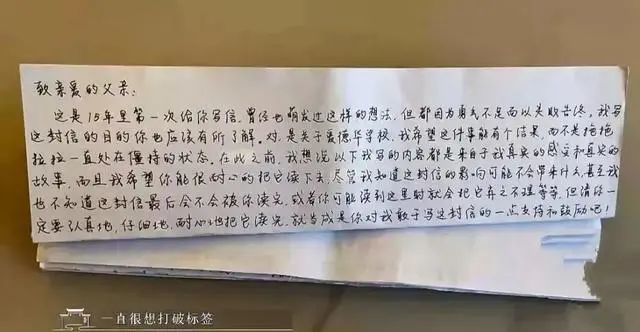 致亲爱的父亲:
这是15年里第一次给你写信,曾经也萌发过这样的想法,但都因为勇气不足而以失败告终,我写
这封信的目的你也应该有所了解。对,是关于爱德华学校,我希望这件事能有个结果,而不是拖拖
拉拉一直处在僵持的状态,在此之前,我想说以下我写的内容都是来自于我真实的感受和真实的
故事,而且我希望你能很耐心的把它读下去,尽管我知道这封信的影响可能不会带来什么,甚至我
也不知道这封信最后会不会被你读完,或者你可能读到这里时就会把它弃之不理等等,但请你一
定要认真地,仔细地,耐心地把它读完,就当成是你对我敢于写这封信的一点支持和鼓励吧!
一直很想打破标签